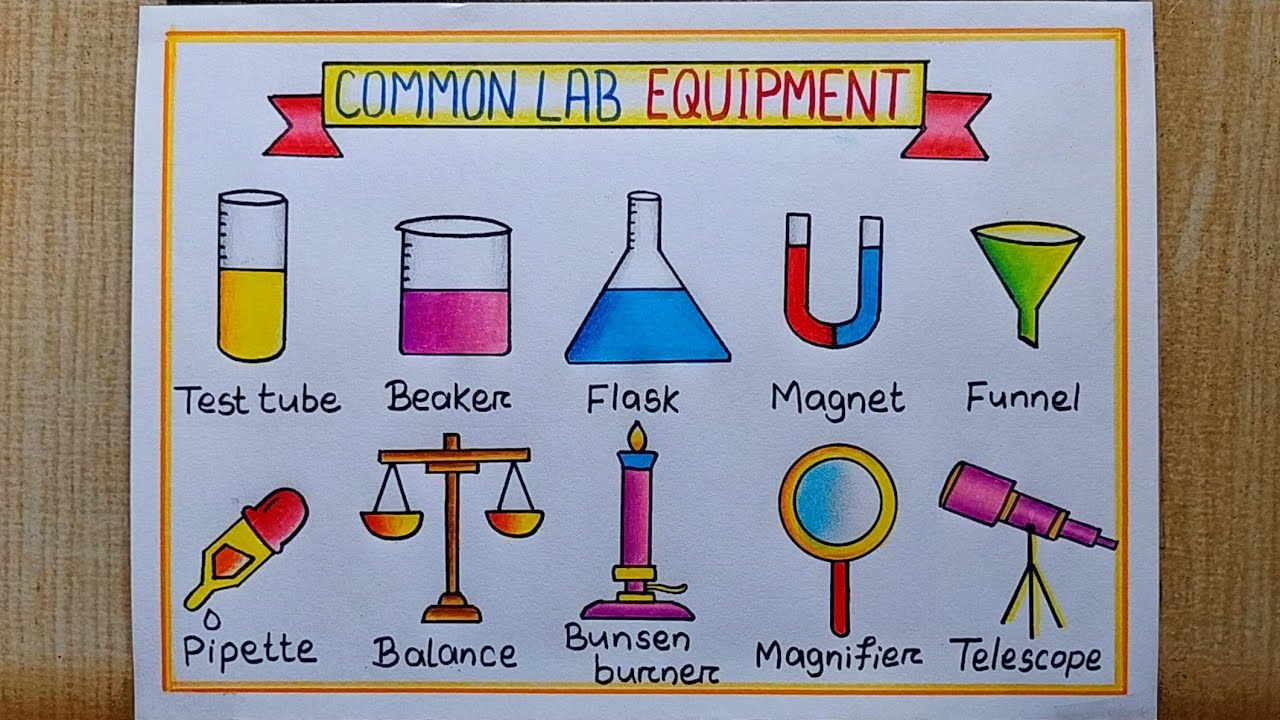 COMMON LAB EQUIPMENT
Test tube
Beaker
Flask
Magnet
Funnel
Pipette
Balance
Bunsen
burner
Magnifier
Telescope